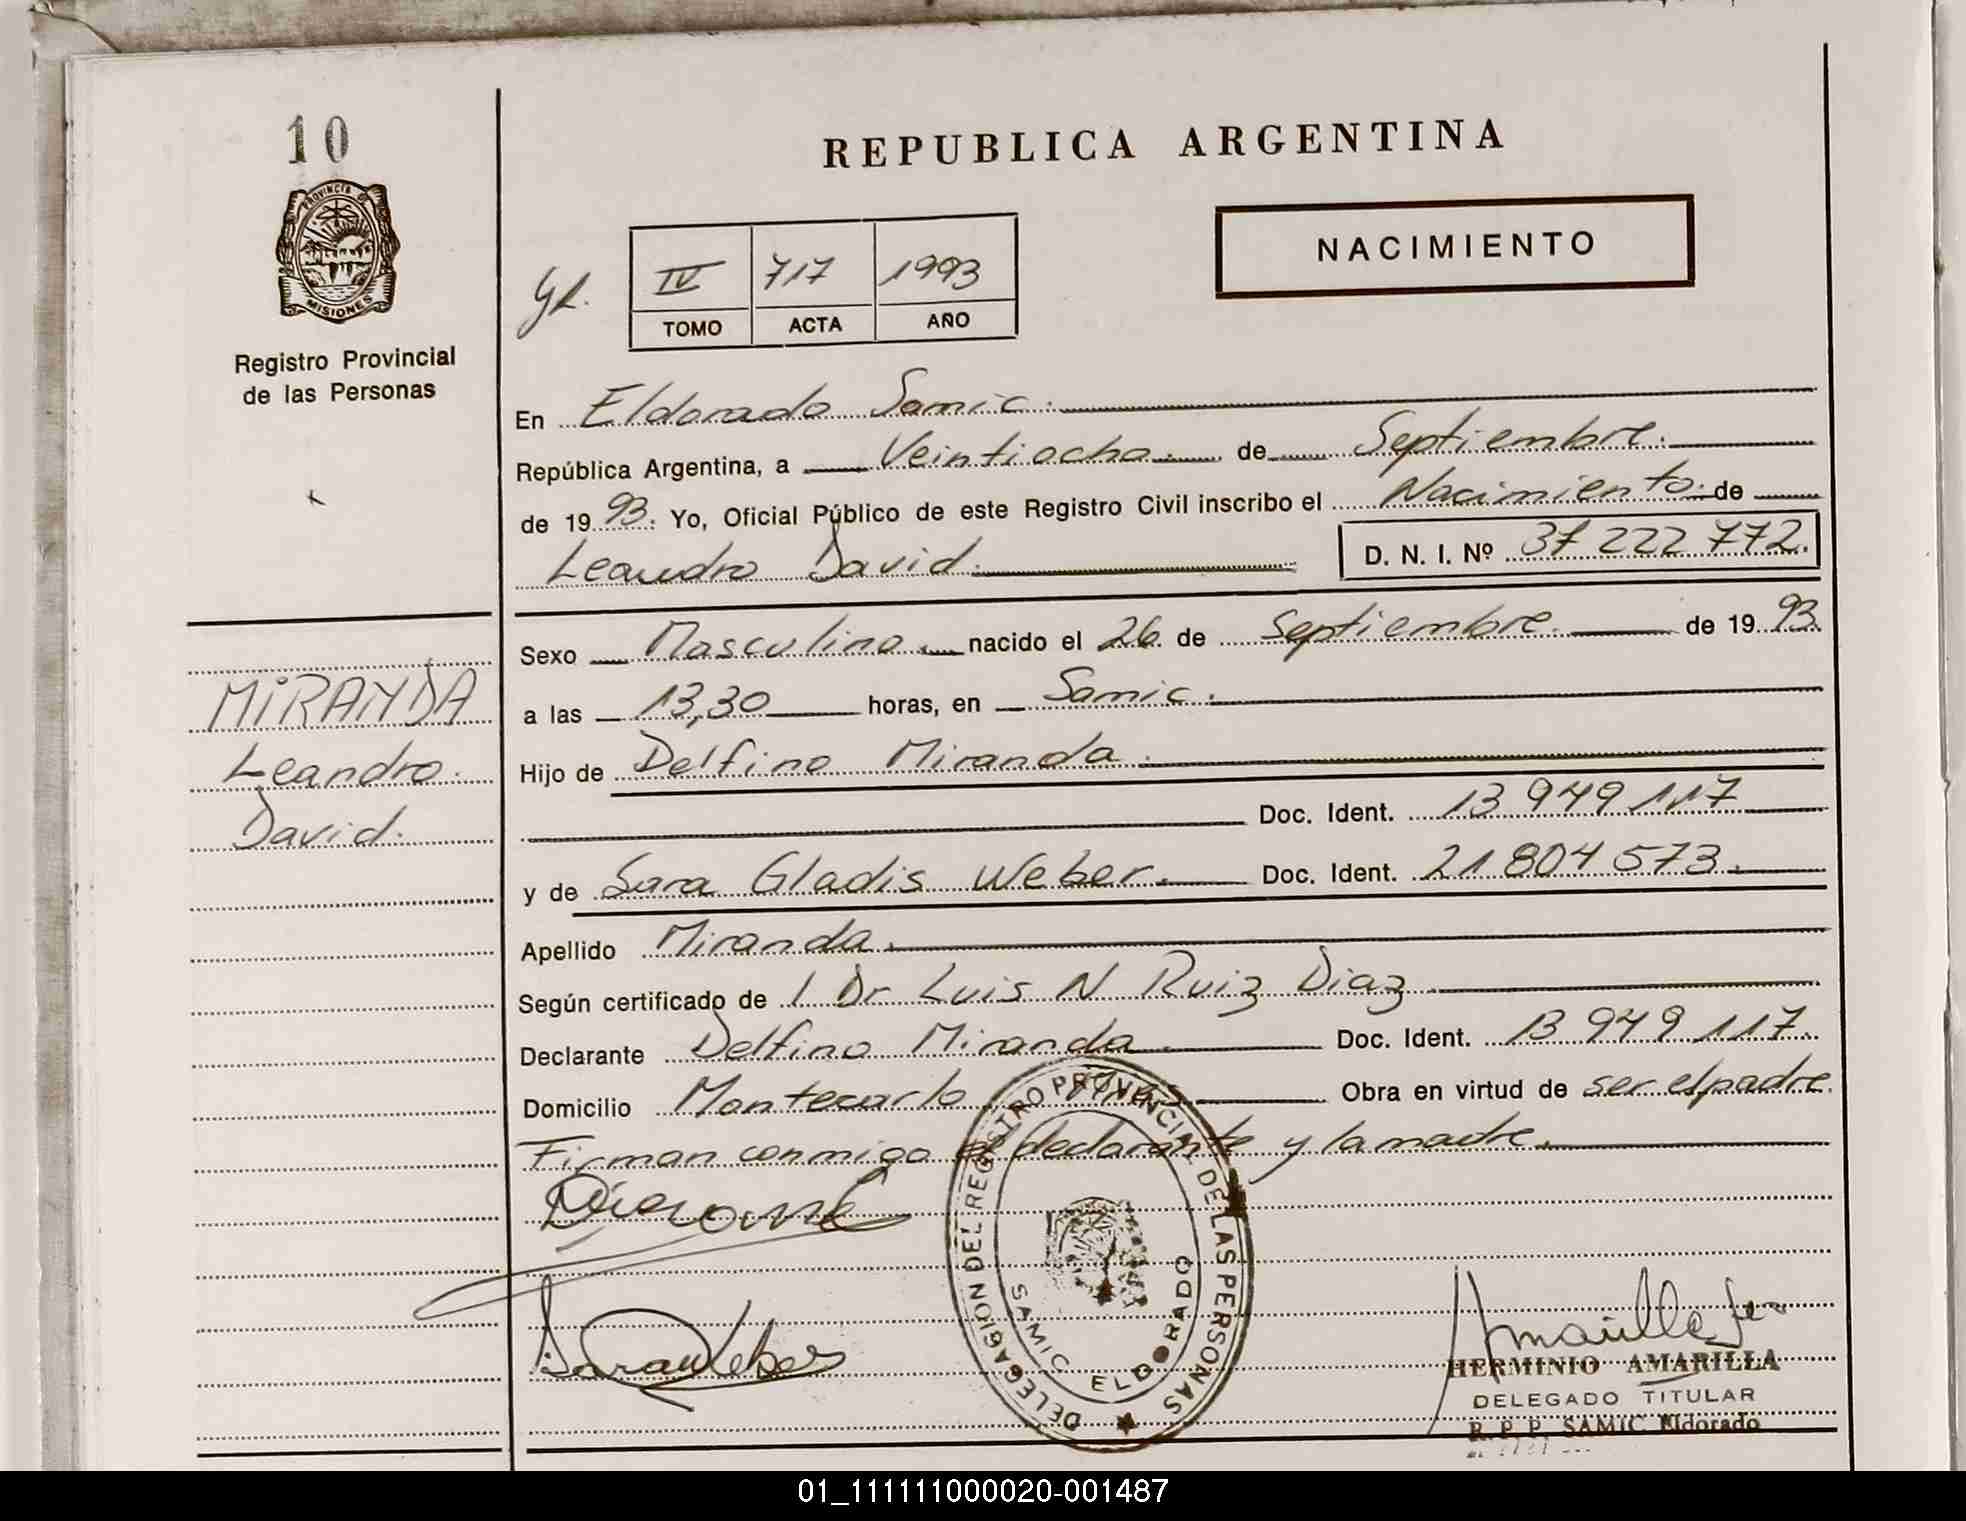 10
PROVINCIA DE
MISIONES
Registro Provincial
de las Personas
MIRANDA
Leandro
David.
REPUBLICA ARGENTINA
NACIMIENTO
IV 717 1993
TOMO ACTA AÑO
En Eldorado Samic.
República Argentina, a Veintiocho. de Septiembre.
de 1993. Yo, Oficial Público de este Registro Civil inscribo el Nacimiento. de
Leandro David. D. N. I. Nº 37 222 772.
Sexo Masculino. nacido el 26 de Septiembre. de 1993.
a las 13,30 horas, en Samic.
Hijo de Delfino Miranda.
Doc. Ident. 13 949 117
y de Sara Gladis Weber. Doc. Ident. 21 804 573.
Apellido Miranda.
Según certificado de / Dr Luis N Ruiz Diaz.
Declarante Delfino Miranda. Doc. Ident. 13 949 117.
Domicilio Montecarlo Obra en virtud de ser el padre.
Firman conmigo el declarante y la madre.
DELEGACION DEL REGISTRO PROVINCIAL DE LAS PERSONAS
SAMIC ELDORADO
HERMINIO AMARILLA
DELEGADO TITULAR
R. P. P. SAMIC Eldorado
01_111111000020-001487